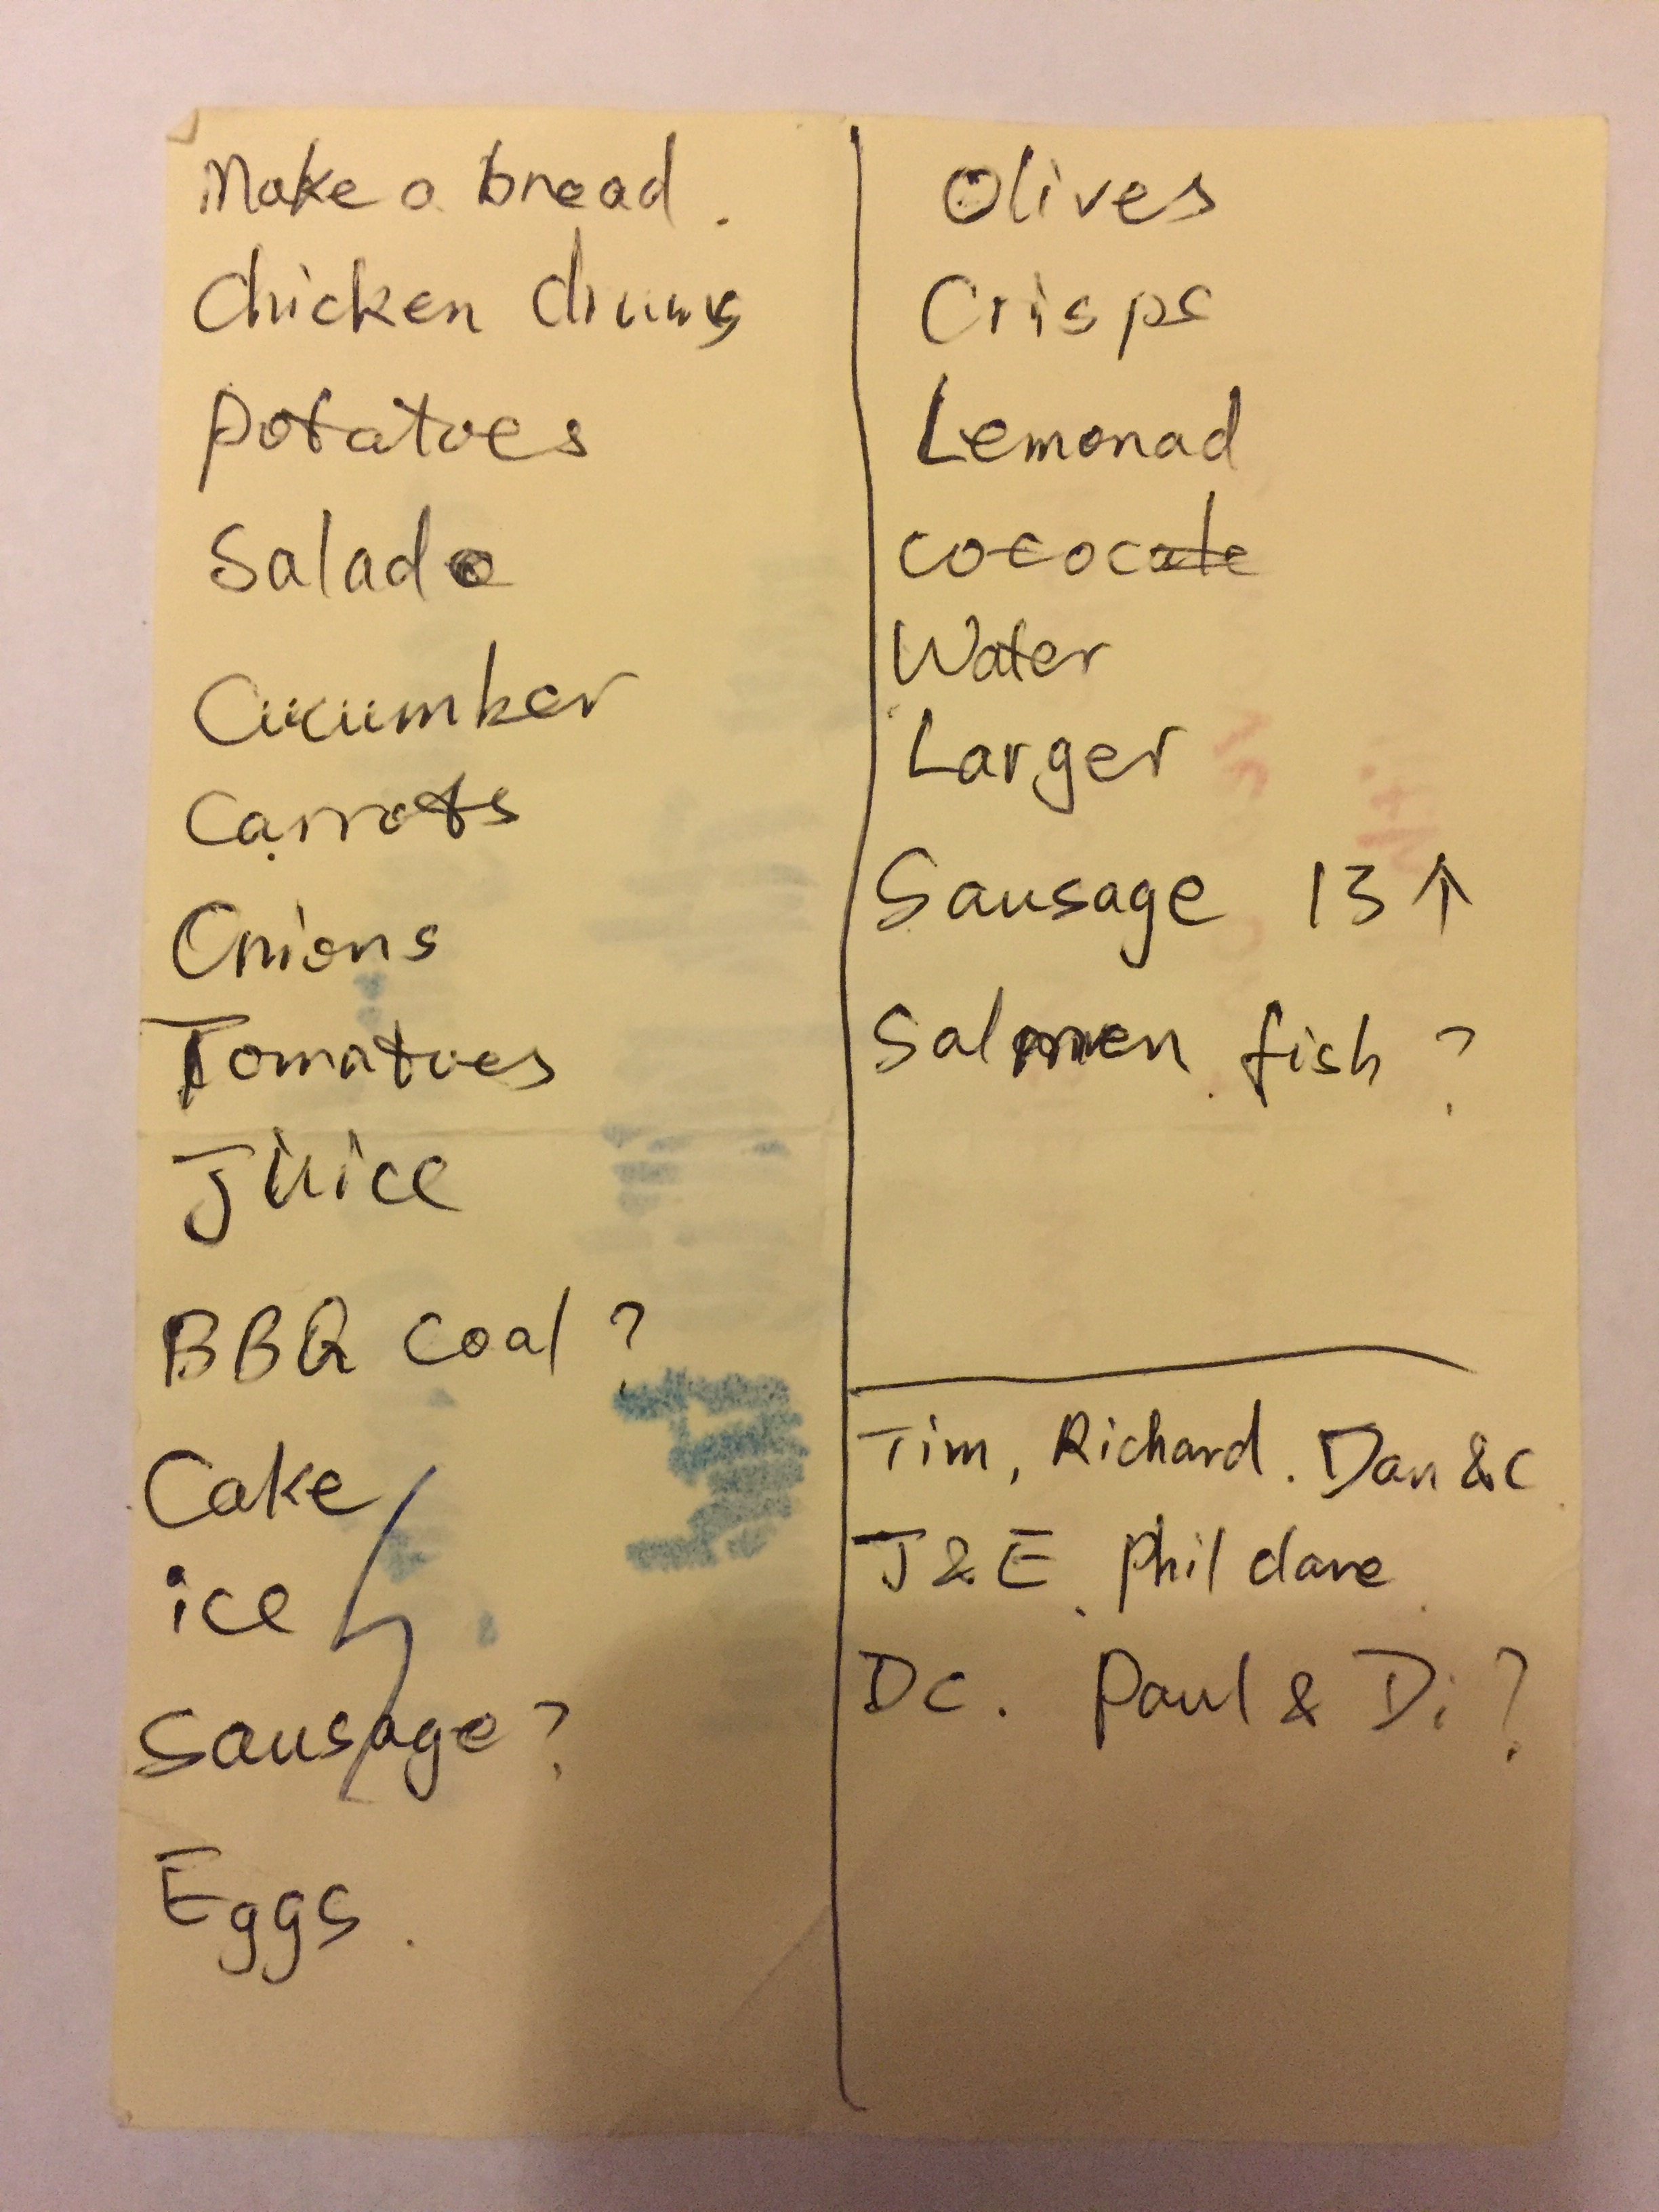 Make a bread.
Chicken drums
Potatoes
Salad
Cucumber
Carrots
Onions
Tomatoes
Juice
BBQ coal?
Cake
ice
Sausage?
Eggs.
Olives
Crisps
Lemonad
Water
Larger
Sausage 13 ↑
Salmen fish?
Tim, Richard. Dan & C.
J & E. Phil
DC. Paul & Di?